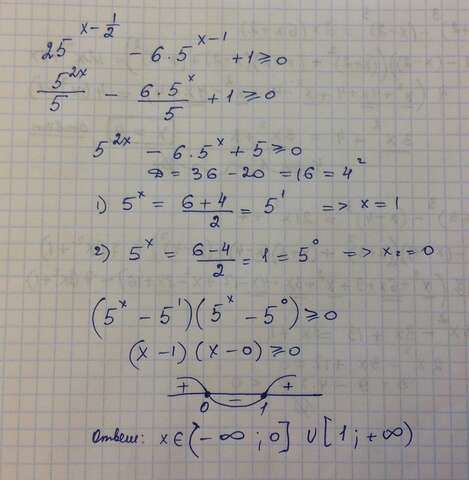 25^(x-1/2) - 6·5^(x-1) + 1 ≥ 0
5^(2x)/5 - 6·5^x/5 + 1 ≥ 0
5^(2x) - 6·5^x + 5 ≥ 0
D = 36 - 20 = 16 = 4²
1) 5^x = (6+4)/2 = 5^1 => x = 1
2) 5^x = (6-4)/2 = 1 = 5^0 => x₂ = 0
(5^x - 5^1)(5^x - 5^0) ≥ 0
(x-1)(x-0) ≥ 0
+ - +
0 1
Ответ: x∈(-∞;0] ∪ [1;+∞)